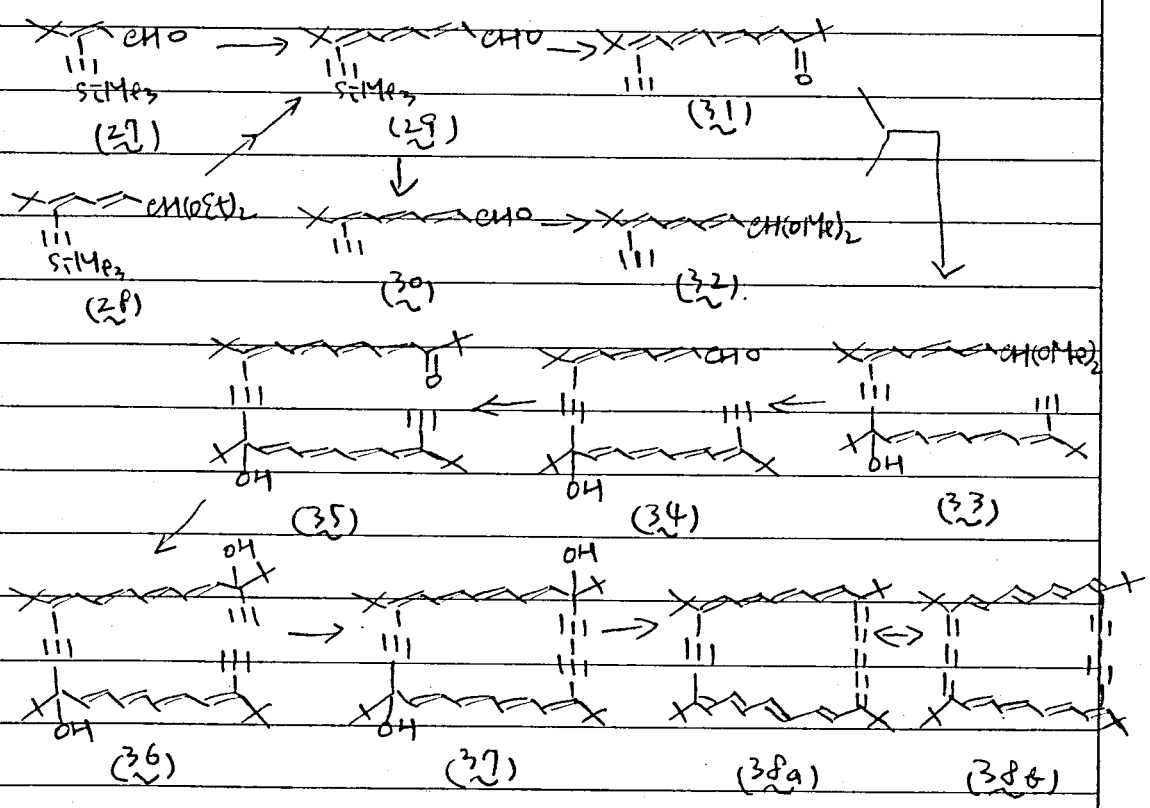 CHO → CHO → O
SiMe3 SiMe3
(27) (29) (31)
CH(OEt)2 CHO → CH(OMe)2
SiMe3
(28) (30) (32).
O CHO CH(OMe)2
OH OH OH
(35) (34) (33)
OH OH
OH OH
(36) (37) (38a) (38b)